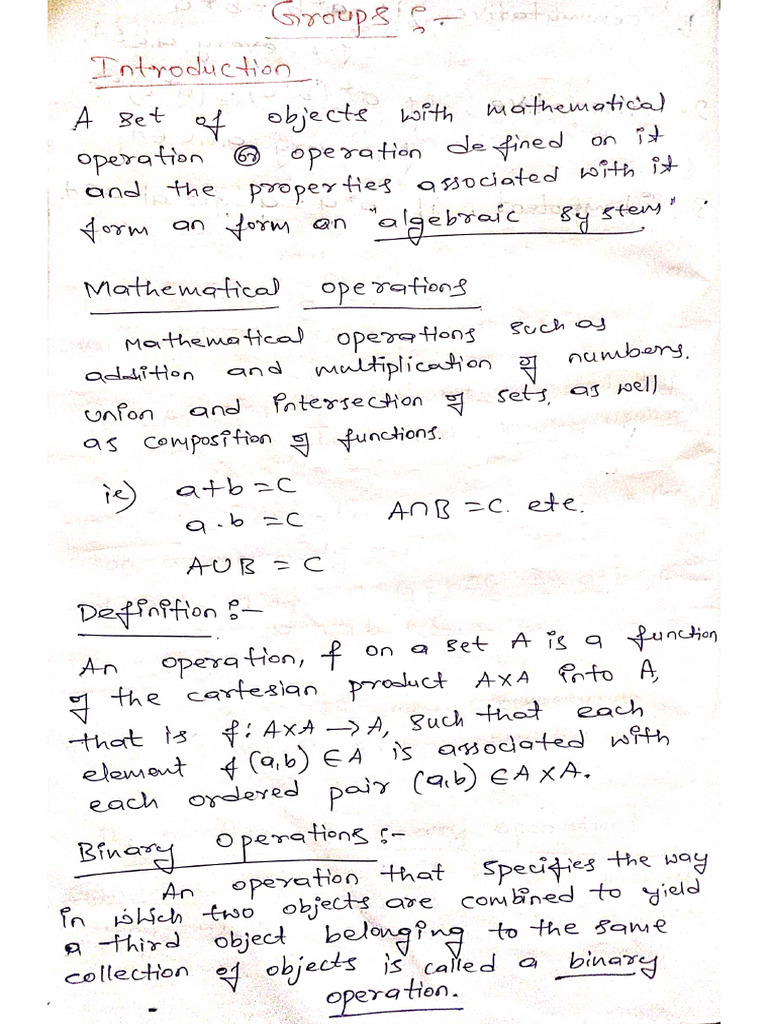 Groups :-
Introduction
A set of objects with mathematical
operation (or) operation defined on it
and the properties associated with it
form an form an "algebraic system"
Mathematical operations
Mathematical operations such as
addition and multiplication of numbers.
union and intersection of sets, as well
as composition of functions.
ie) a+b = C
a.b = C A∩B = C. etc.
A∪B = C
Definition :-
An operation, f on a set A is a function
of the cartesian product A×A into A,
that is f: A×A → A, such that each
element f(a,b) ∈ A is associated with
each ordered pair (a,b) ∈ A×A.
Binary operations :-
An operation that specifies the way
in which two objects are combined to yield
a third object belonging to the same
collection of objects is called a binary
operation.